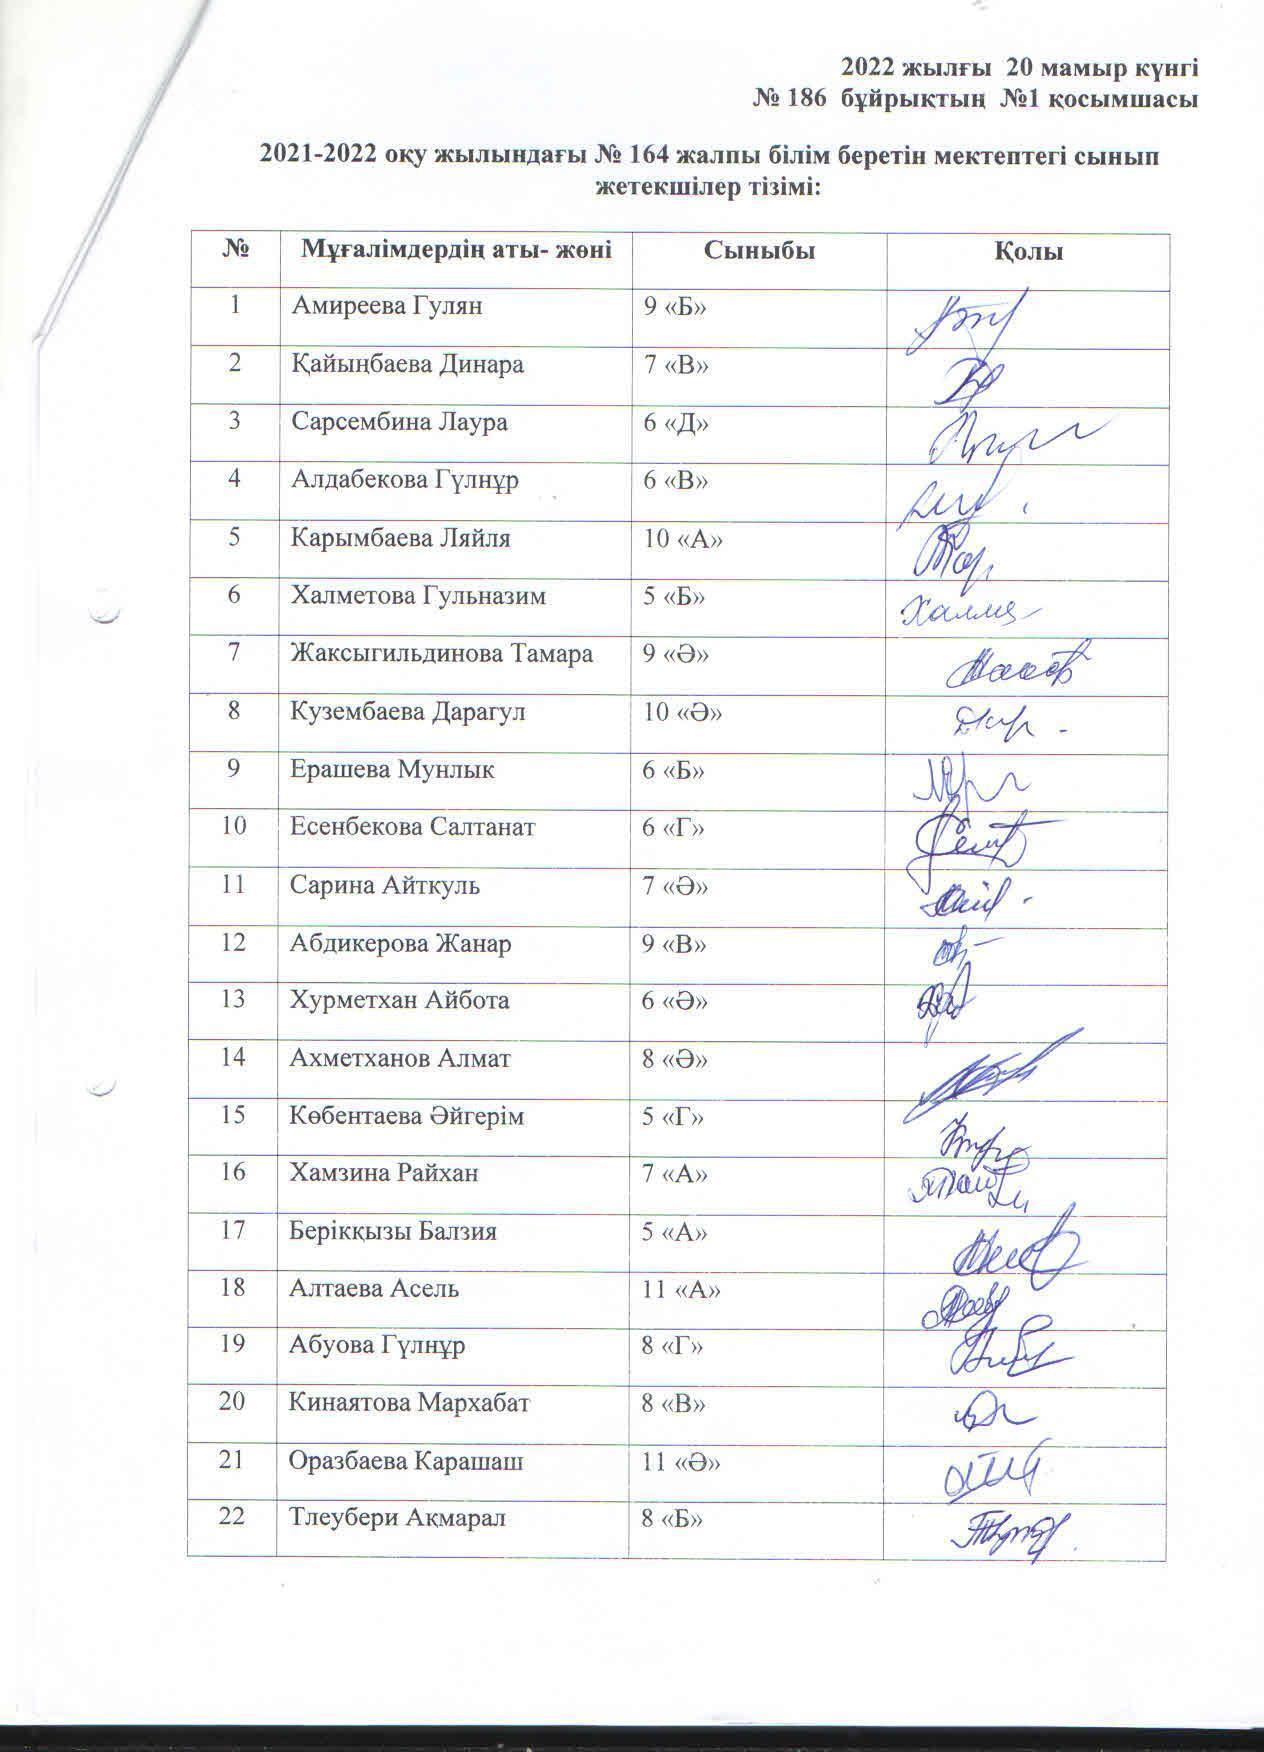 2022 жылғы 20 мамыр күнгі
№ 186 бұйрықтың №1 қосымшасы
2021-2022 оқу жылындағы № 164 жалпы білім беретін мектептегі сынып
жетекшілер тізімі:
№ Мұғалімдердің аты- жөні Сыныбы Қолы
1 Амиреева Гулян 9 «Б»
2 Қайыңбаева Динара 7 «В»
3 Сарсембина Лаура 6 «Д»
4 Алдабекова Гүлнұр 6 «В»
5 Карымбаева Ляйля 10 «А»
6 Халметова Гульназим 5 «Б»
7 Жаксыгильдинова Тамара 9 «Ә»
8 Кузембаева Дарагул 10 «Ә»
9 Ерашева Мунлык 6 «Б»
10 Есенбекова Салтанат 6 «Г»
11 Сарина Айткуль 7 «Ә»
12 Абдикерова Жанар 9 «В»
13 Хурметхан Айбота 6 «Ә»
14 Ахметханов Алмат 8 «Ә»
15 Көбентаева Әйгерім 5 «Г»
16 Хамзина Райхан 7 «А»
17 Беріккызы Балзия 5 «А»
18 Алтаева Асель 11 «А»
19 Абуова Гүлнұр 8 «Г»
20 Кинаятова Мархабат 8 «В»
21 Оразбаева Карашаш 11 «Ә»
22 Тлеубери Ақмарал 8 «Б»